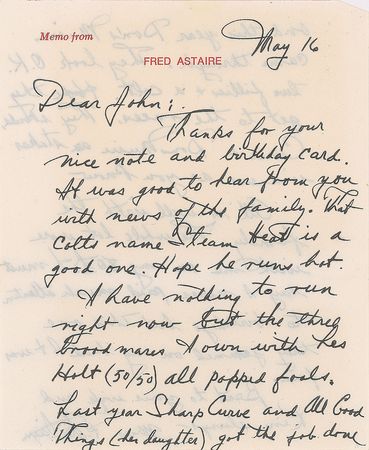 Memo from
FRED ASTAIRE
May 16
Dear John:.
Thanks for your
nice note and birthday card.
It was good to hear from you
with news of the family. That
colts name Steam Heat is a
good one. Hope he runs hot.
I have nothing to run
right now but the three
brood mares I own with Les
Holt (50/50) all popped foals.
Last year Sharp Curve and All Good
Things (her daughter) got the job done